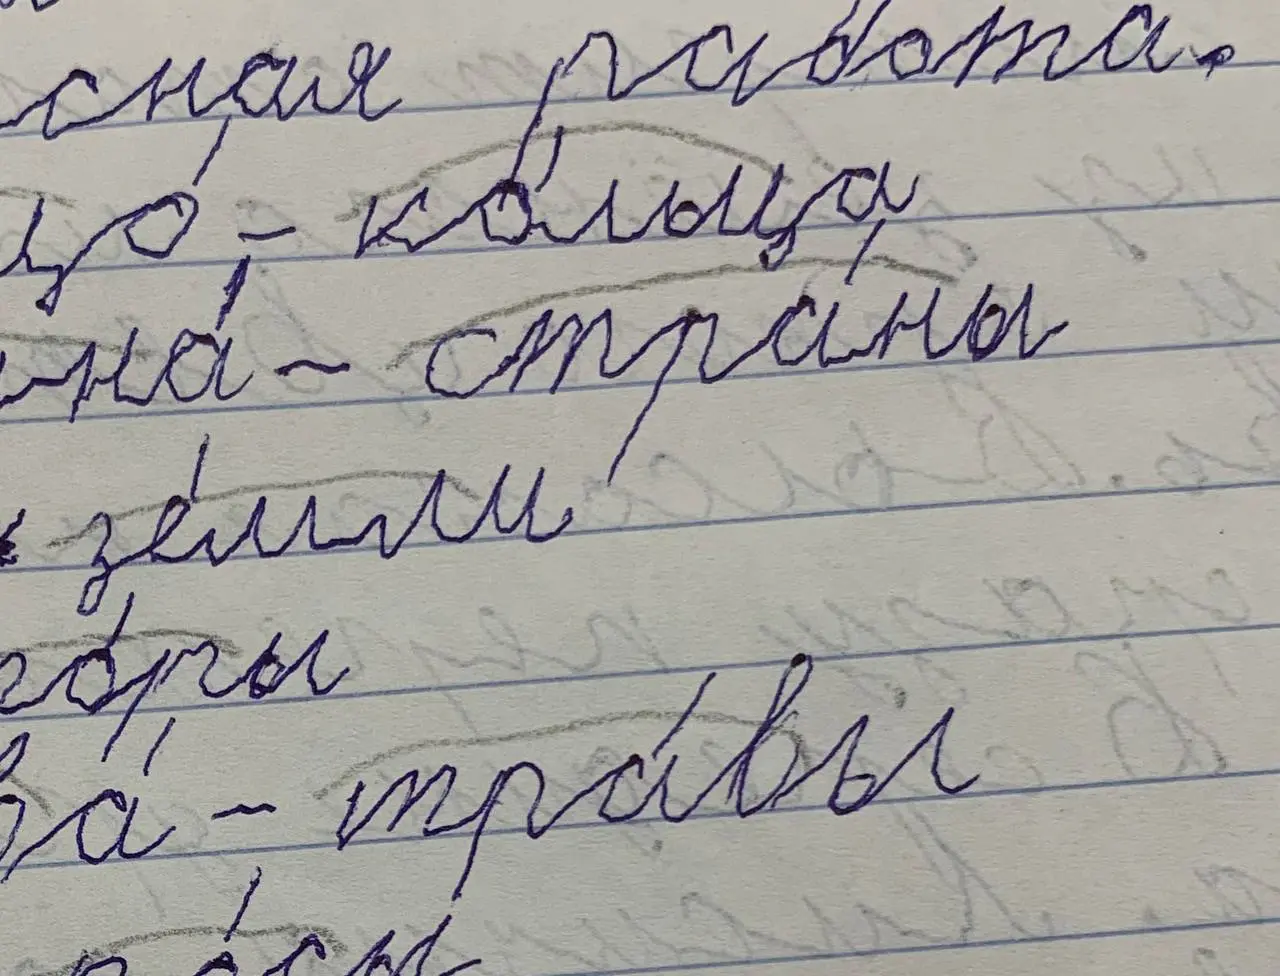 сная работа.
цо́ - ко́льца
на́ - стра́ны
зе́мли
го́ры
ва́ - тра́вы